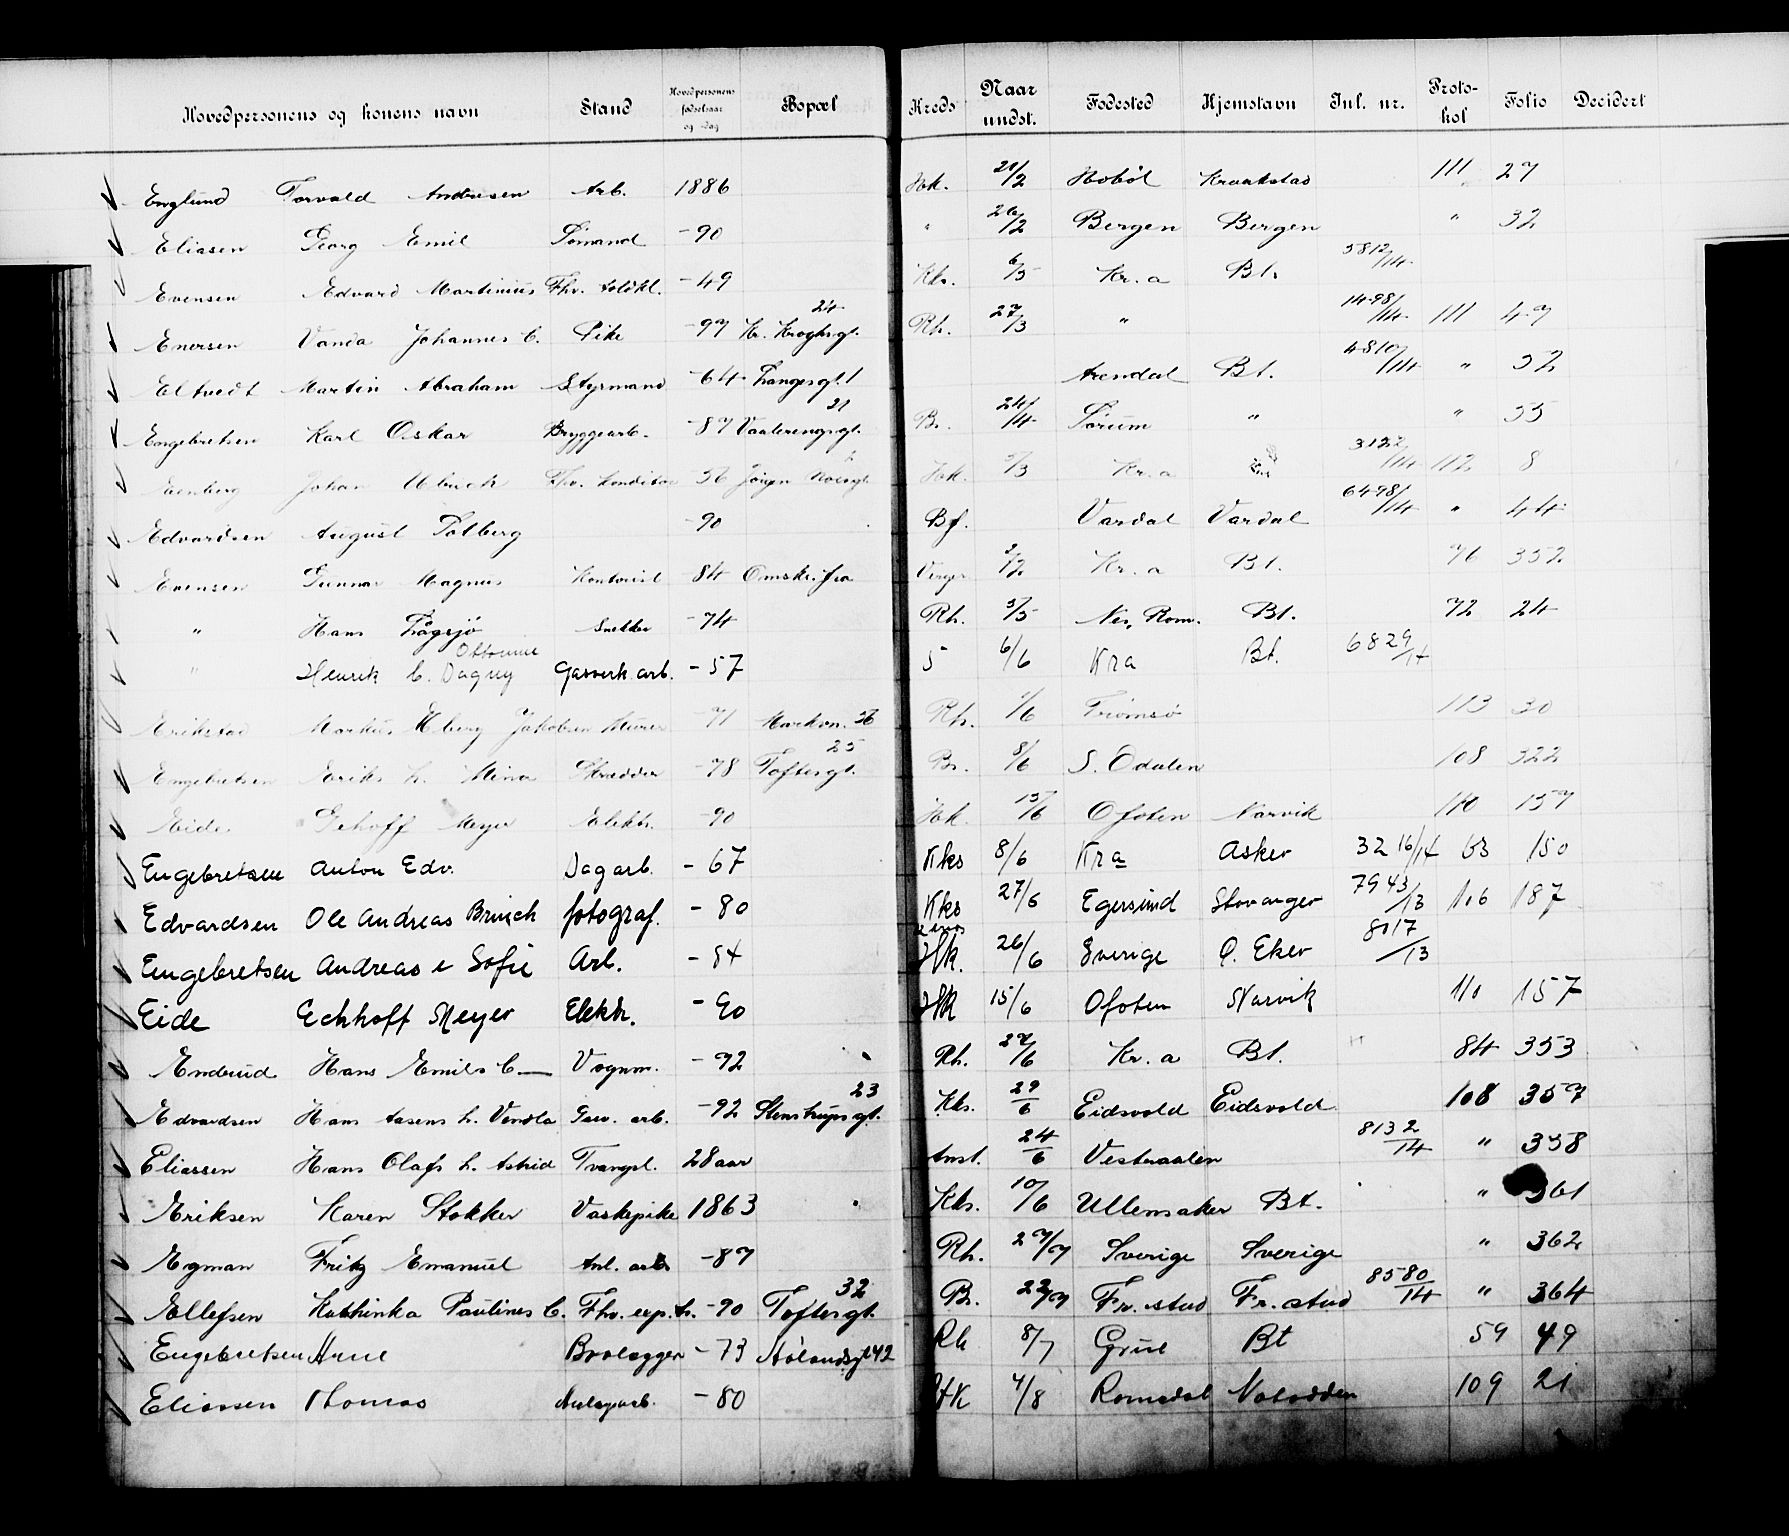 Hovedpersonens og konens navn Stand Hovedpersonens fødselsaar og -dag Bopæl Kreds Naar undst. Fødested Hjemstavn Jnl. nr. Protokol Folio Decidert
Englund Torvald Andresen Arb. 1886 Hk. 21/2 Hobøl Kraakstad 111 27
Eliasen Georg Emil Sømand -90 " 26/2 Bergen Bergen " 32
Evensen Edvard Martinius Fhv. toldkl. -49 Kks. 6/5 Kr.a Bt. 5812/14
Enersen Vanda Johannes C. Pike -97 Kr. Kroghsgt. 24 Rh. 27/3 " 1498/14 111 47
Eltvedt Martin Abraham Styrmand -64 Langesgt. 1 Arendal Bt. 4810/14 " 52
Engebretsen Karl Oskar Bryggearb. -87 Vaalerengsgt. 21 B. 24/4 Sørum " " 55
Johan Fhv. Konditor -56 Jörgen Hk. /3 Kr.a 3122/14 112 8
Edvardsen August Solberg -90 Bf. Vardal Vardal 6498/14 " 44
Evensen Gunnar Magnus Kontorist -84 Omskr. fra Verger 2/2 Kr.a Bt. 76 352
" Hans Lågsjö Snekker -74 Rh. 5/5 Nes, Rom. Bt. 72 24
" Henrik C. Dagny Ottonine Gasverk. arb. -57 5 6/6 Kra Bt. 6829/14
Erikstad Markus Elberg Jakobsen Murer -71 Markvn. 56 Rh. 1/6 Tromsø 113 30
Engebretsen Eriks h. Mina Skrædder -78 Toftesgt. 25 Br. 8/6 S. Odalen 108 322
Eide Echoff Meyer Elektr. -90 Hk. 15/6 Ofoten Narvik 110 157
Engebretsen Anton Edv. Dagarb. -67 Kks 8/6 Kra Asker 3216/14 63 150
Edvardsen Ole Andreas Brinch fotograf. -80 Kks 27/6 Egersund Stavanger 7943/13 106 187
Engebretsen Andreas e Sofie Arb. -54 Hk. 26/6 Sverige Ø. Eker 8017/13
Eide Echhoff Meyer Elektr. -90 Hk 15/6 Ofoten Narvik 110 157
Enderud Hans Emils C Vognm. -92 Rh. 27/6 Kr.a Bt. 84 353
Edvardsen Hans Aasens h. Vendla Garv. arb. -92 Stenstrupsgt. 23 Kks. 29/6 Eidsvold Eidsvold 108 357
Eliassen Hans Olafs h. Astrid Tvangsl. 28 aar Anst. 24/6 Vesteraalen 8132/14 " 358
Eriksen Karen Stokker Vaskepike 1863 Kks. 10/6 Ullensaker Bt. " 361
Egman Fritz Emanuel Anl. arb -87 Rh. 27/7 Sverige Sverige " 362
Ellefsen Kathinka Paulines C. Fhv. exp.tr. -90 Toftesgt. 32 B. 22/7 Fr.stad Fr.stad 8580/14 " 364
Engebretsen Arne Brolægger -73 Hølandsgt 42 Rh 8/7 Grue Bt 59 49
Eliassen Thomas Anlægsarb. -80 HK 4/8 Romsdal Notodden 109 21